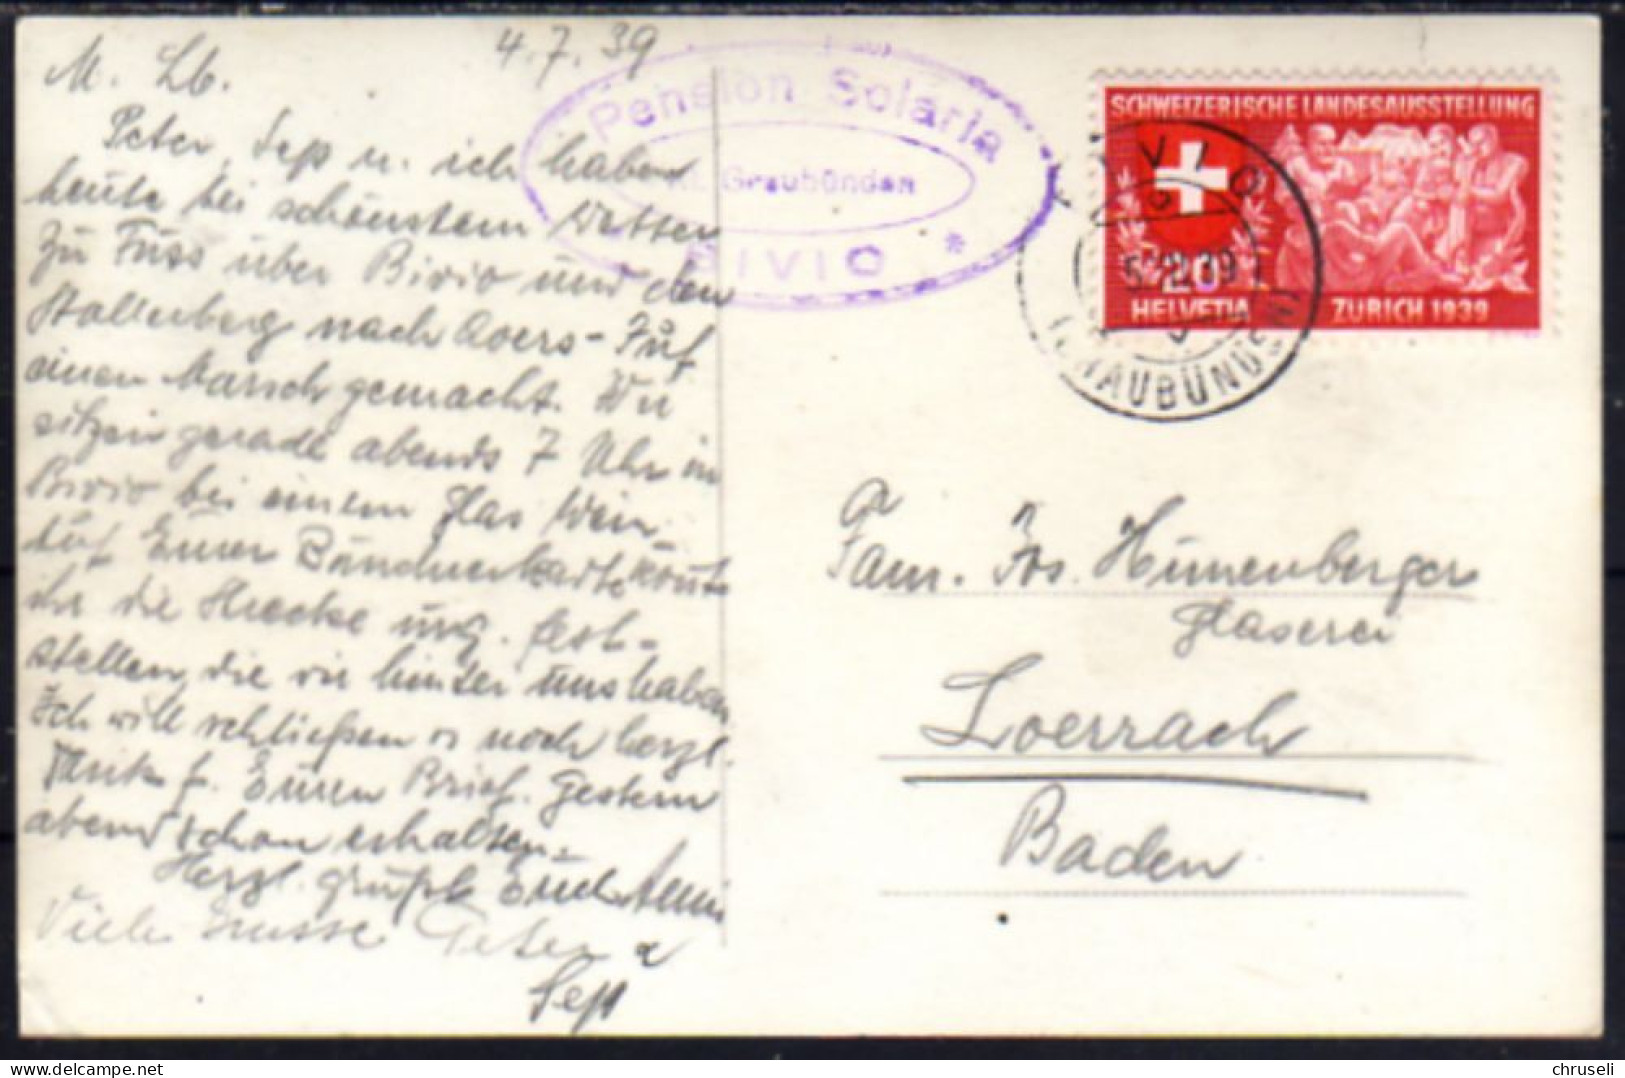 4.7.39
M. Lb.
Peter, Sepp u. ich haben
heute bei schönstem Wetter
zu Fuss über Bivio und den
Stallerberg nach Avers-Juf
einen Marsch gemacht. Wir
sitzen gerade abends 7 Uhr in
Bivio bei einem Glas Wein.
Auf Eurer Bündnerkarte könnt
ihr die Strecke ung. fest-
stellen, die wir hinter uns haben.
Ich will schließen u noch herzl.
Dank f. Euren Brief. Gestern
abend schon erhalten.
Herzl. Grüße Euch
Viele Grüsse Peter &
Sepp
Pension Solaria
Kt. Graubünden
BIVIO *
SCHWEIZERISCHE LANDESAUSSTELLUNG
20
HELVETIA ZÜRICH 1939
BIVIO
(GRAUBÜNDEN)
Fam. Jos. Hünenberger
Glaserei
Loerrach
Baden
© chruseli